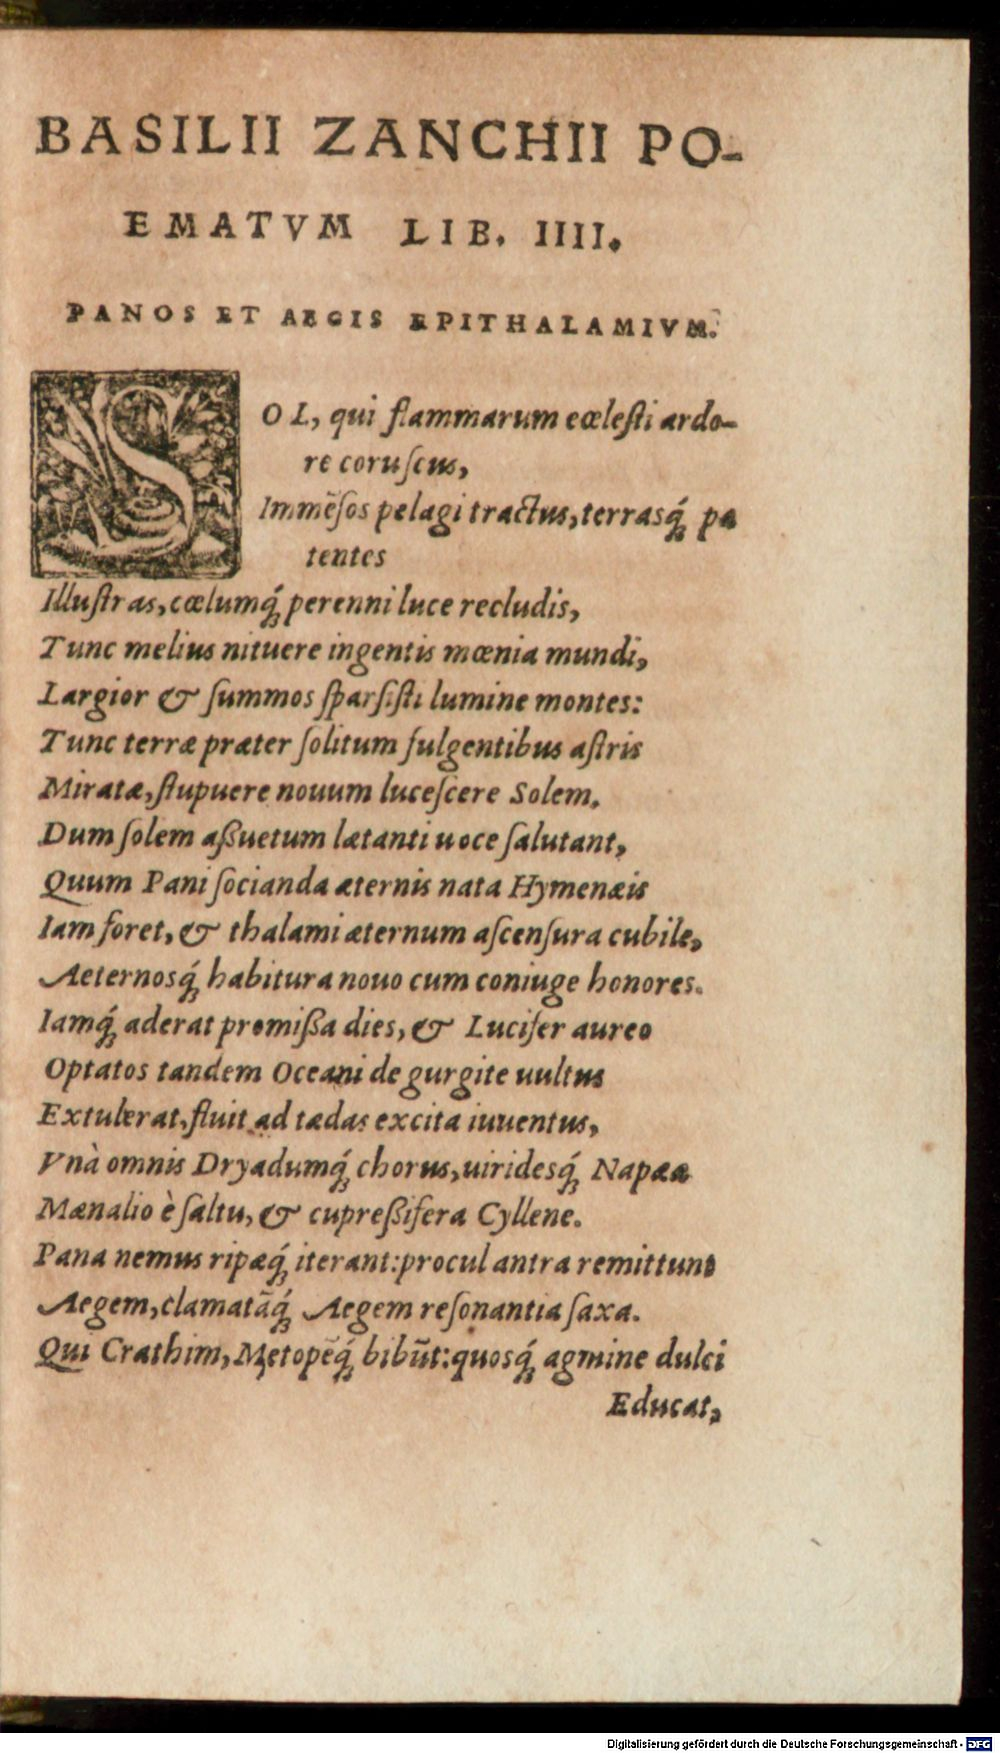 BASILII ZANCHII PO-
EMATVM LIB. IIII.
PANOS ET AEGIS EPITHALAMIVM.
SOL, qui flammarum cœlesti ardo-
re coruscus,
Immẽsos pelagi tractus, terrasq́; pa
tentes
Illustras, cœlumq́; perenni luce recludis,
Tunc melius nituere ingentis mœnia mundi,
Largior & summos sparsisti lumine montes:
Tunc terræ præter solitum fulgentibus astris
Miratæ, stupuere nouum lucescere Solem.
Dum solem aßuetum lætanti uoce salutant,
Quum Pani socianda æternis nata Hymenæis
Iam foret, & thalami æternum ascensura cubile,
Aeternosq́; habitura nouo cum coniuge honores.
Iamq́; aderat promißa dies, & Lucifer aureo
Optatos tandem Oceani de gurgite uultus
Extulerat, fluit ad tædas excita iuuentus,
Vnà omnis Dryadumq́; chorus, uiridesq́; Napææ
Mænalio è saltu, & cupreßifera Cyllene.
Pana nemus ripæq́; iterant: procul antra remittunt
Aegem, clamatãq́; Aegem resonantia saxa.
Qui Crathim, Metopẽq́; bibũt: quosq́; agmine dulci
Educat,
Digitalisierung gefördert durch die Deutsche Forschungsgemeinschaft - DFG